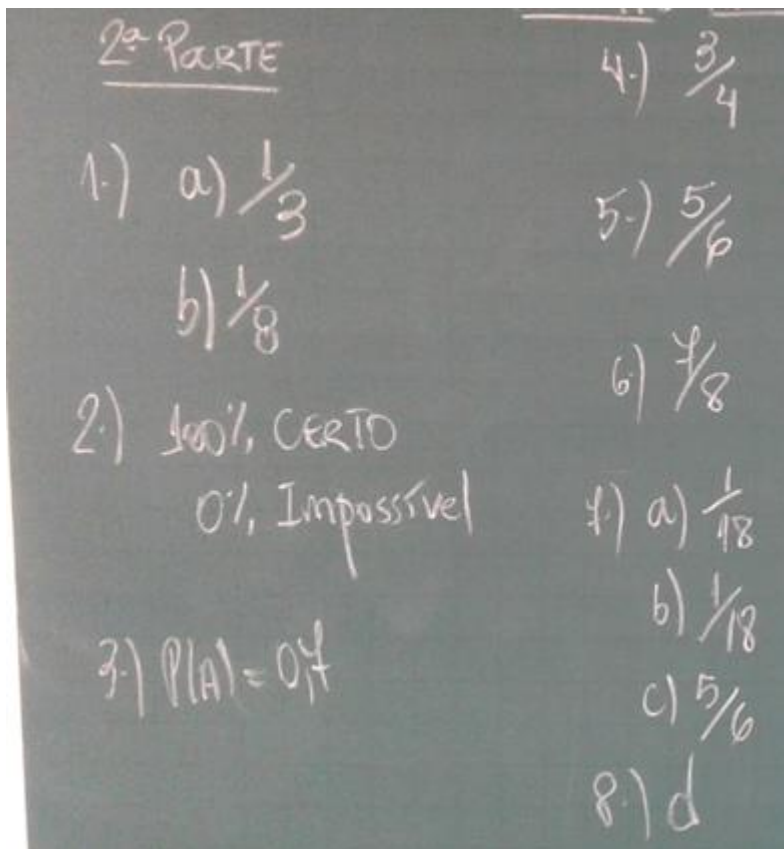 2ª PARTE
1.) a) 1/3
b) 1/8
2.) 100%, CERTO
0%, Impossível
3.) P(A) = 0,7
4.) 3/4
5.) 5/6
6.) 7/8
7.) a) 1/18
b) 1/18
c) 5/6
8.) d